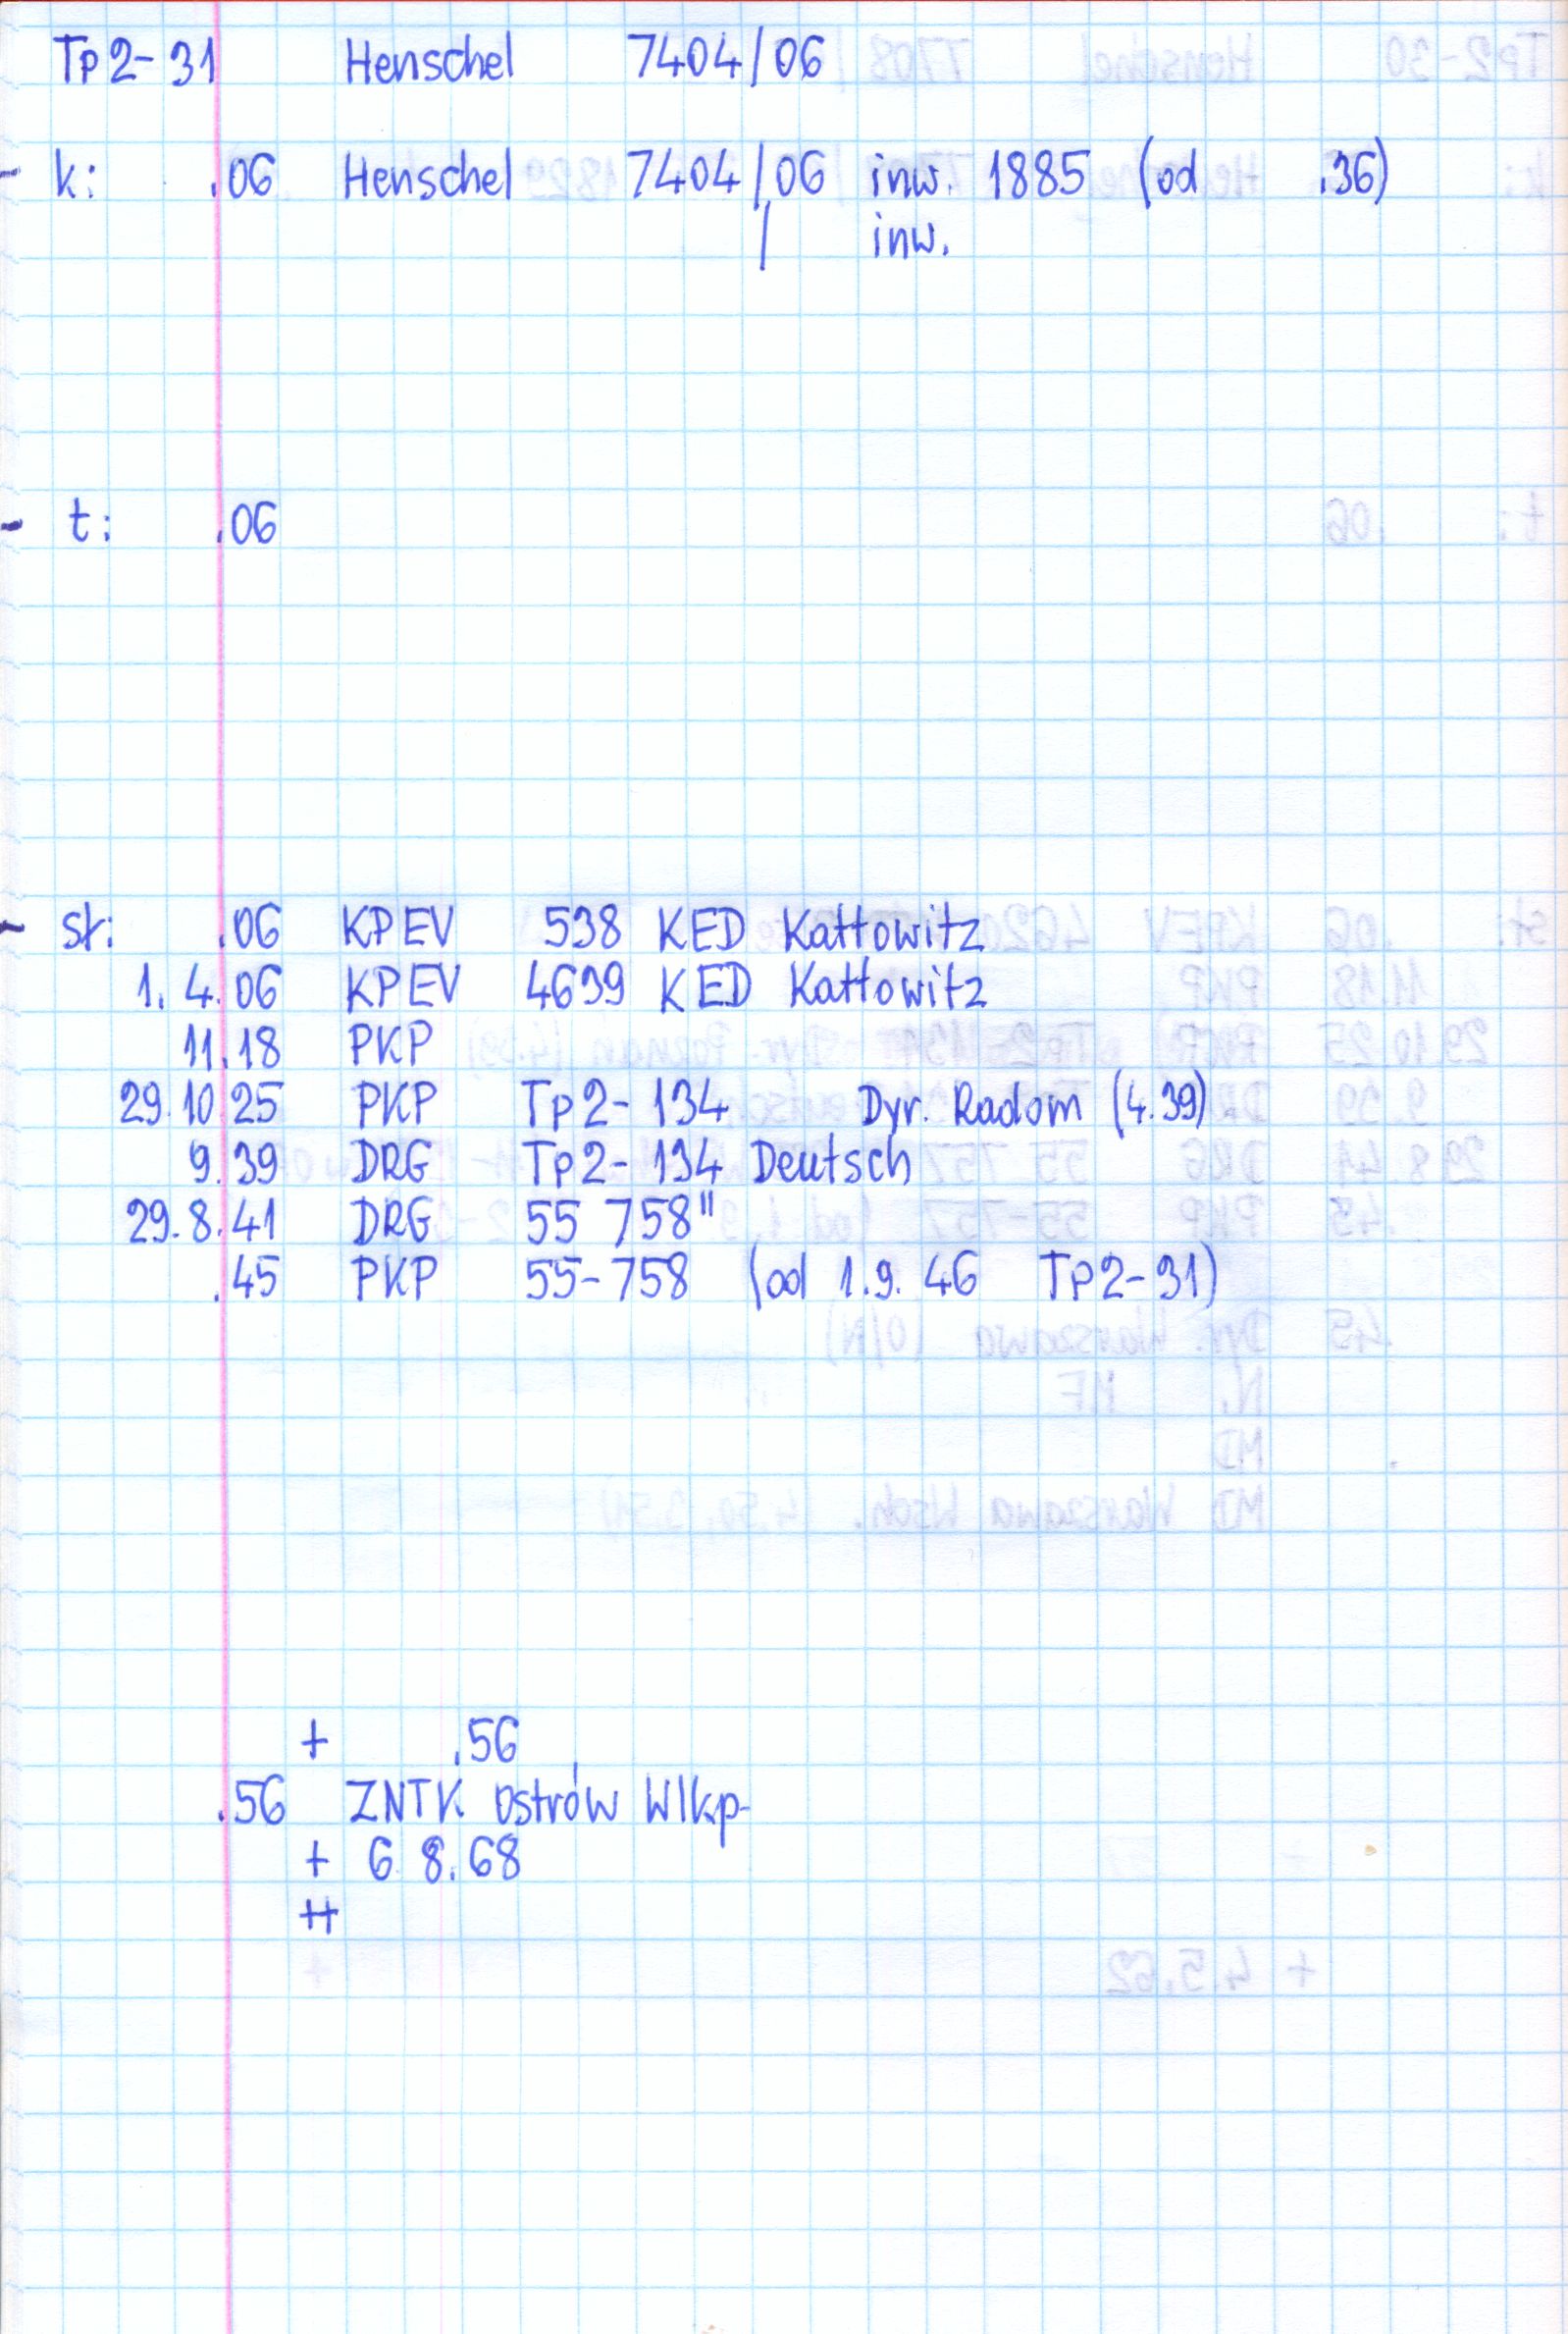 Tp2-31 Henschel 7404/06
- k: .06 Henschel 7404/06 inw. 1885 (od .36)
/ inw.
- t: .06
- st: .06 KPEV 538 KED Kattowitz
1. 4.06 KPEV 4639 KED Kattowitz
11.18 PKP
29.10.25 PKP Tp2-134 Dyr. Radom (4.39)
9.39 DRG Tp2-134 Deutsch
29.8.41 DRG 55 758"
.45 PKP 55-758 (od 1.9.46 Tp2-31)
+ .56
.56 ZNTK Ostrów Wlkp.
+ 6 8.68
++